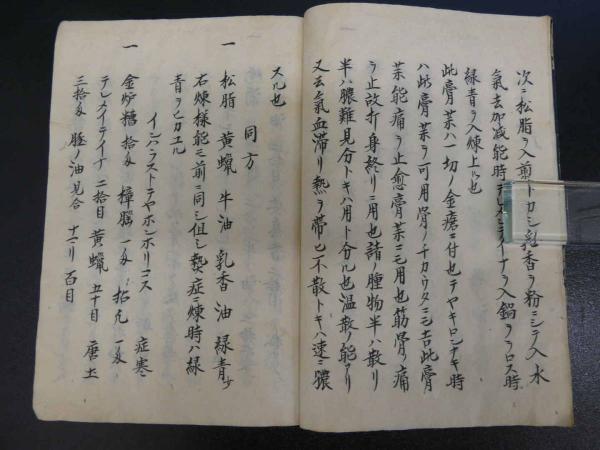 次ニ松脂ヲ入煎トカシ乳香ヲ粉ニシテ入水
氣去加減能時テレメンテイナヲ入鍋ヲヲロス時
緑青ヲ入煉上ル也
此膏菜ハ一切ノ金瘡ニ付也テヤキロンナキ時
ハ此膏菜ヲ可用骨ノチカウタニモ吉此膏
菜能痛ヲ止愈膏菜ニモ用也筋骨ノ痛
ヲ止故打身終リニ用也諸ノ腫物半ハ散リ
半ハ膿難見分トキハ用ト分ル也温散ノ能アリ
又云氣血滞リ熱ヲ帯ヒ不散トキハ速ニ膿
スル也
同方
一 松脂 黄蝋 牛油 乳香 油 緑青少
右煉様能ニ前ニ同シ但シ熱症ニ煉時ハ緑
青ヲヒカエル
インハラストテヤホンホリコス 症寒
一 金炉糖 拾匁 樟脳 一匁 拾九 一匁
テレメイテイナ 二拾目 黄蝋 五十目 唐土
三拾匁 豚ノ油見合 十六リ 百目